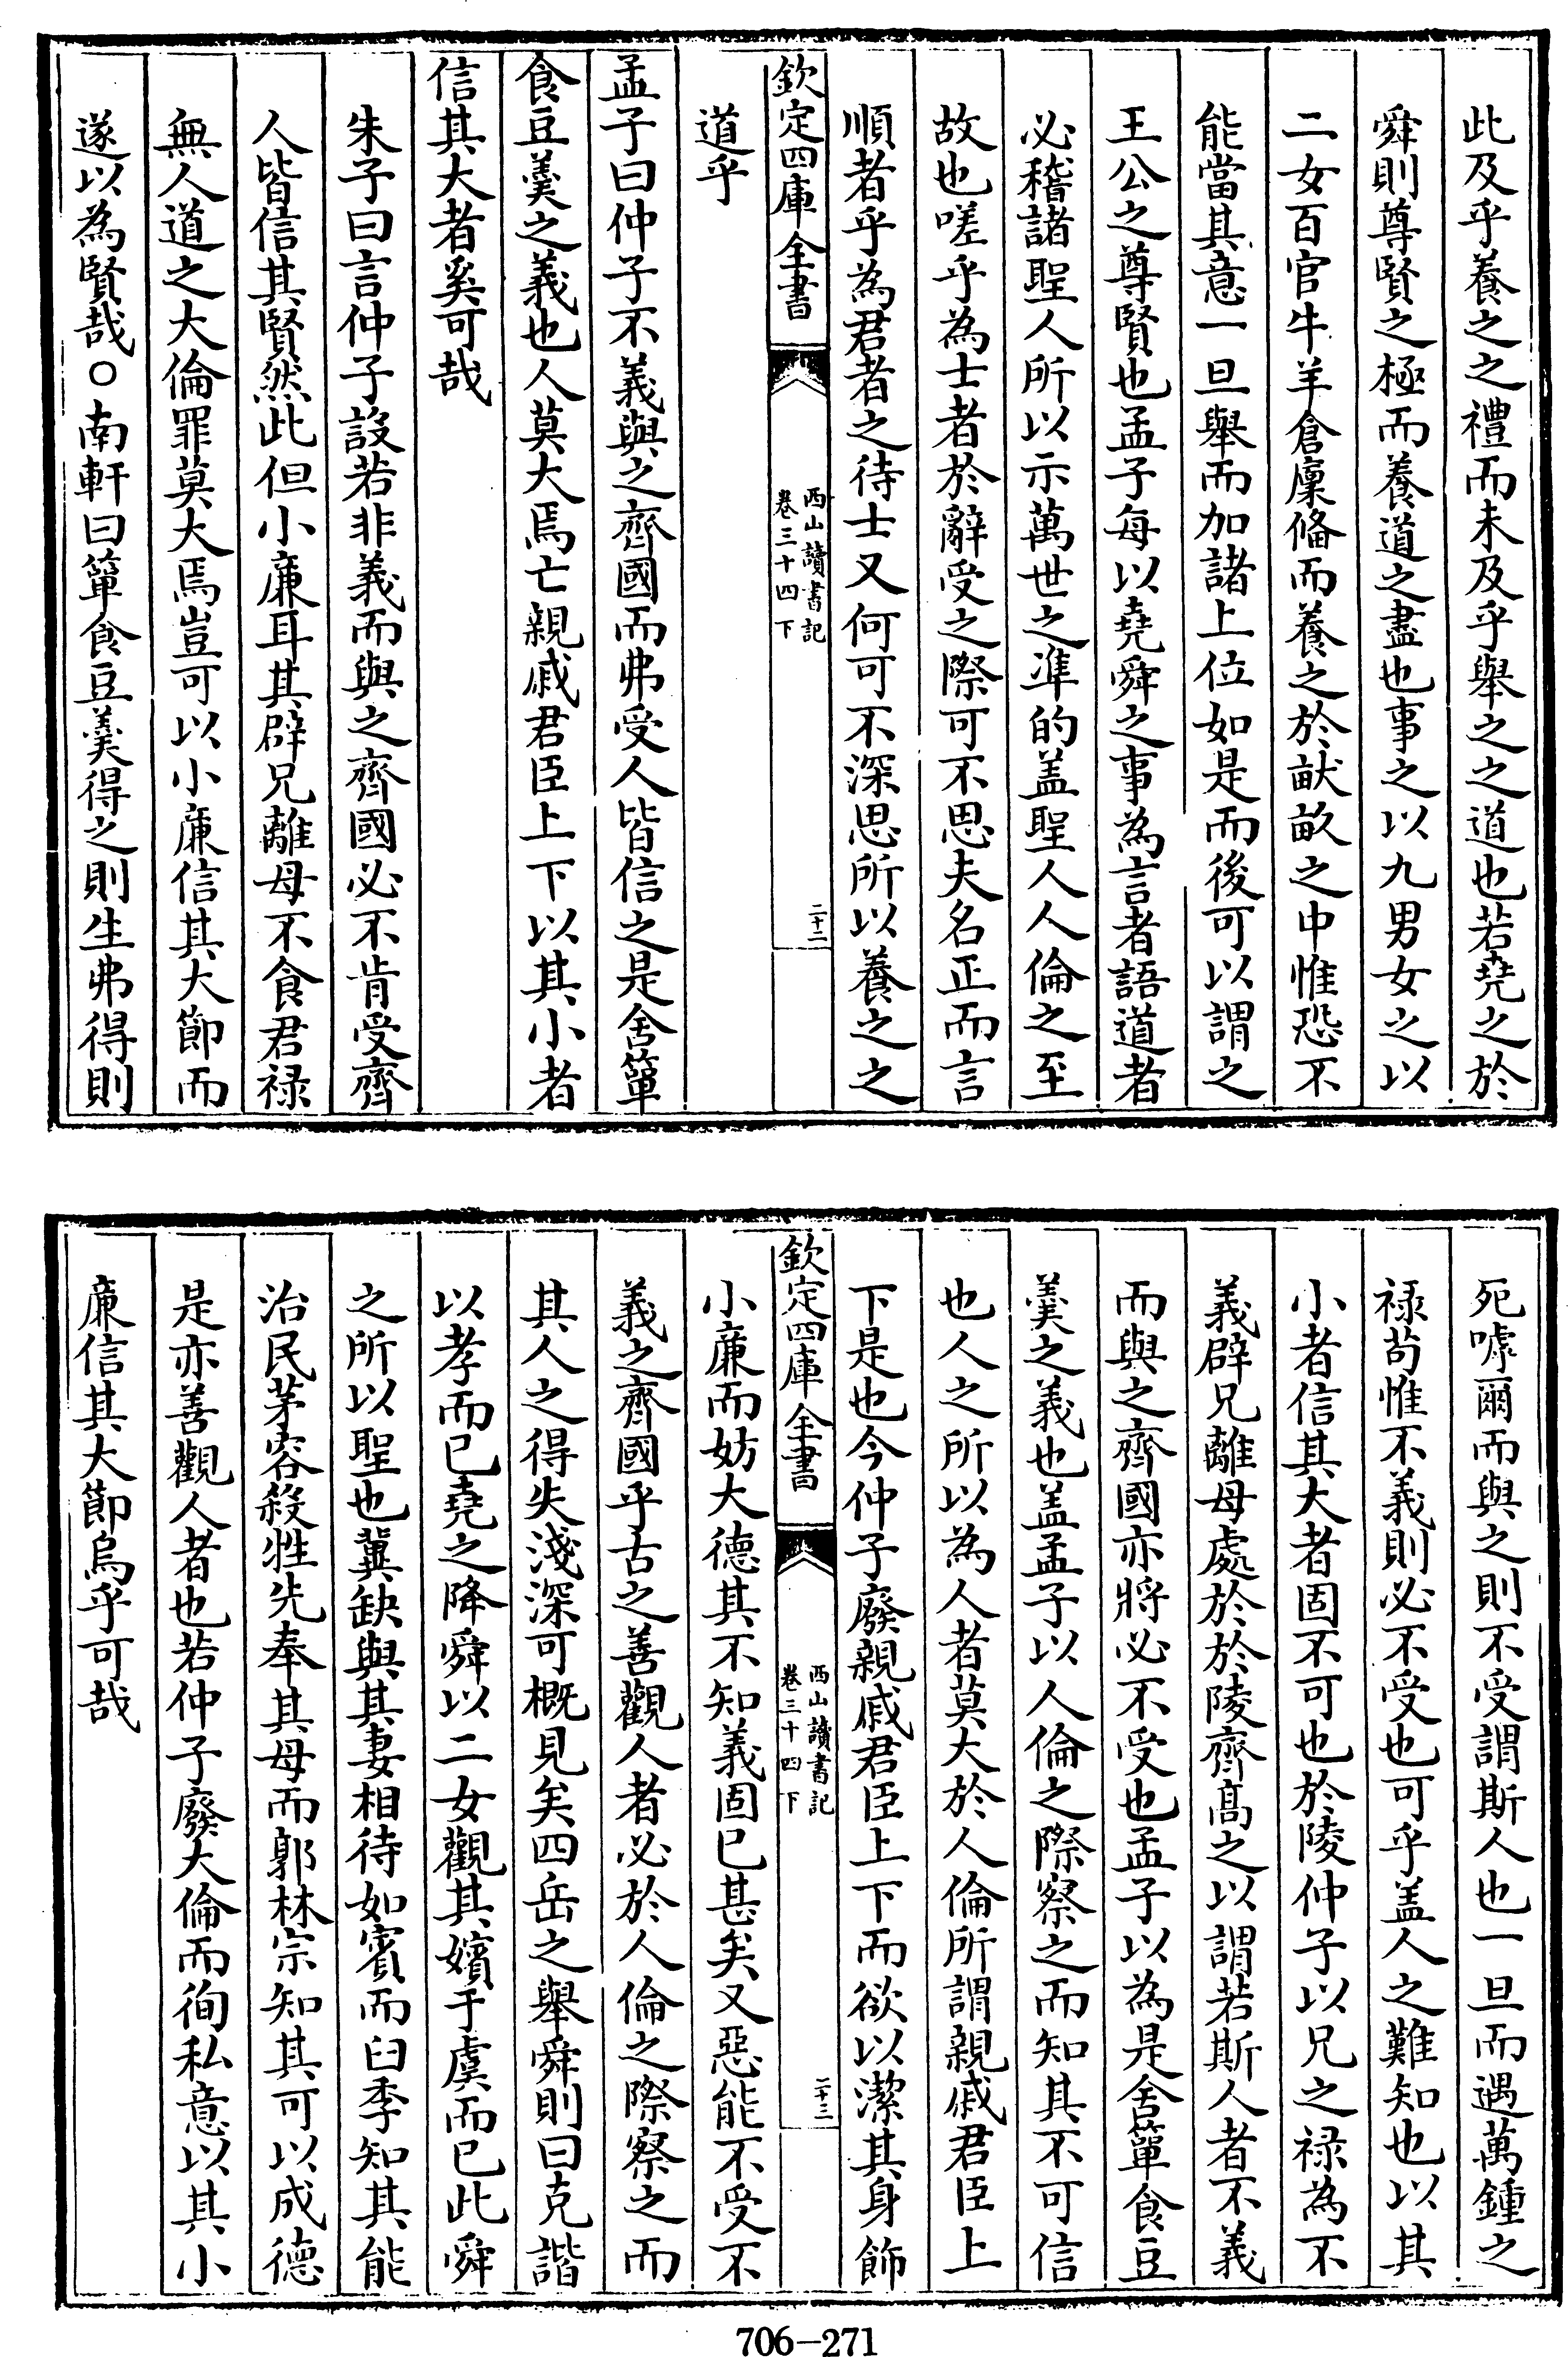 此及乎養之之禮而未及乎舉之之道也若堯之於
舜則尊賢之極而養道之盡也事之以九男女之以
二女百官牛羊倉廩備而養之於畎畝之中惟恐不
能當其意一旦舉而加諸上位如是而後可以謂之
王公之尊賢也孟子每以堯舜之事為言者語道者
必稽諸聖人所以示萬世之準的盖聖人人倫之至
故也嗟乎為士者於辭受之際可不思夫名正而言
順者乎為君者之待士又何可不深思所以養之之
欽定四庫全書
西山讀書記
卷三十四下
二十二
道乎
孟子曰仲子不義與之齊國而弗受人皆信之是舍簞
食豆羹之義也人莫大焉亡親戚君臣上下以其小者
信其大者奚可哉
朱子曰言仲子設若非義而與之齊國必不肯受齊
人皆信其賢然此但小廉耳其辟兄離母不食君祿
無人道之大倫罪莫大焉豈可以小廉信其大節而
遂以為賢哉○南軒曰簞食豆羹得之則生弗得則
死嘑爾而與之則不受謂斯人也一旦而遇萬鍾之
祿苟惟不義則必不受也可乎盖人之難知也以其
小者信其大者固不可也於陵仲子以兄之祿為不
義辟兄離母處於於陵齊高之以謂若斯人者不義
而與之齊國亦將必不受也孟子以為是舍簞食豆
羹之義也盖孟子以人倫之際察之而知其不可信
也人之所以為人者莫大於人倫所謂親戚君臣上
下是也今仲子廢親戚君臣上下而欲以潔其身飾
欽定四庫全書
西山讀書記
卷三十四下
二十三
小廉而妨大德其不知義固已甚矣又惡能不受不
義之齊國乎古之善觀人者必於人倫之際察之而
其人之得失淺深可概見矣四岳之舉舜則曰克諧
以孝而已堯之降舜以二女觀其嬪于虞而已此舜
之所以聖也冀缺與其妻相待如賓而臼季知其能
治民茅容殺牲先奉其母而郭林宗知其可以成德
是亦善觀人者也若仲子廢大倫而徇私意以其小
廉信其大節烏乎可哉
706-271